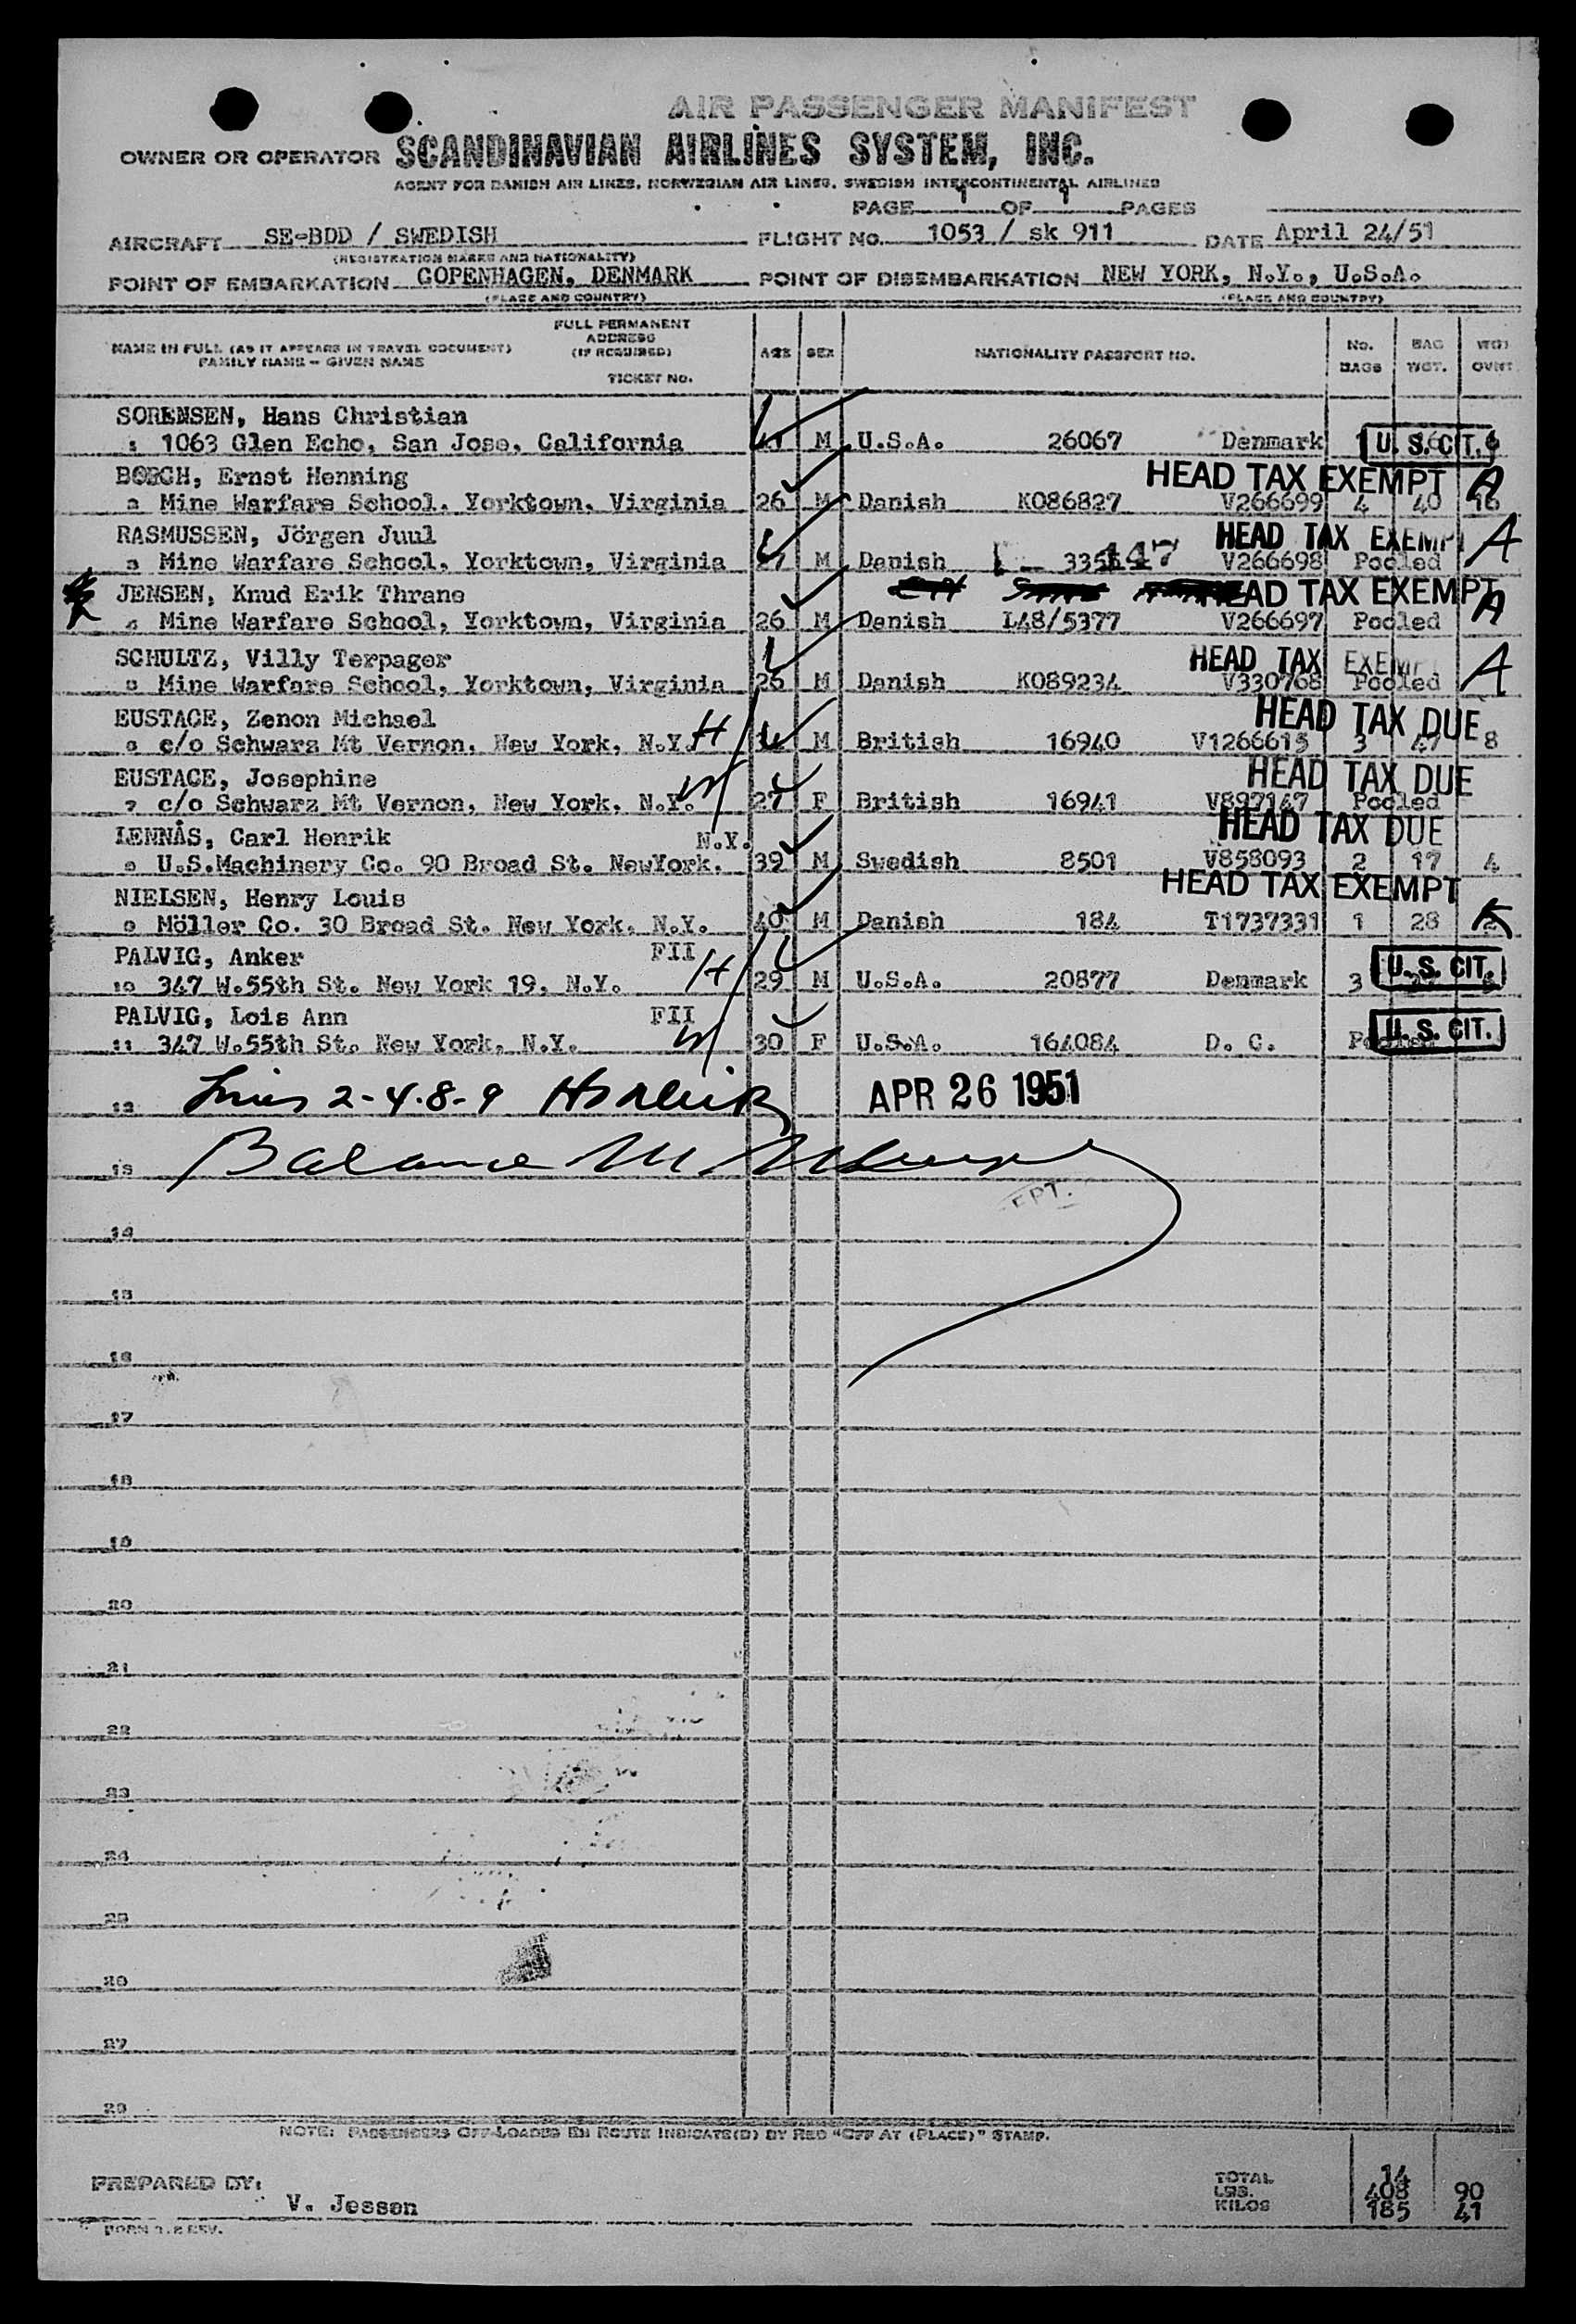 AIR PASSENGER MANIFEST
OWNER OR OPERATOR SCANDINAVIAN AIRLINES SYSTEM, INC.
AGENT FOR DANISH AIR LINES, NORWEGIAN AIR LINES, SWEDISH INTERCONTINENTAL AIRLINES
PAGE 1 OF 1 PAGES
AIRCRAFT SE-BDD / SWEDISH FLIGHT NO. 1053 / sk 911 DATE April 24/51
(REGISTRATION MARKS AND NATIONALITY)
POINT OF EMBARKATION COPENHAGEN, DENMARK POINT OF DISEMBARKATION NEW YORK, N.Y., U.S.A.
(PLACE AND COUNTRY) (PLACE AND COUNTRY)
NAME IN FULL (AS IT APPEARS IN TRAVEL DOCUMENT) FAMILY NAME - GIVEN NAME FULL PERMANENT ADDRESS (IF REQUIRED) TICKET NO. AGE SEX NATIONALITY PASSPORT NO. No. BAGS BAG WGT. WGT OVWT
SORENSEN, Hans Christian
1 1063 Glen Echo, San Jose, California M U.S.A. 26067 Denmark 1 U. S. CIT.
BORCH, Ernst Henning HEAD TAX EXEMPT A
2 Mine Warfare School, Yorktown, Virginia 26 M Danish K086827 V266699 4 40 16
RASMUSSEN, Jörgen Juul HEAD TAX EXEMPT A
3 Mine Warfare School, Yorktown, Virginia M Danish 447 V266698 Pooled
JENSEN, Knud Erik Thrane HEAD TAX EXEMPT A
4 Mine Warfare School, Yorktown, Virginia 26 M Danish L48/5377 V266697 Pooled
SCHULTZ, Villy Terpager HEAD TAX EXEMPT A
5 Mine Warfare School, Yorktown, Virginia 26 M Danish K089234 V330768 Pooled
EUSTACE, Zenon Michael H HEAD TAX DUE
6 c/o Schwarz Mt Vernon, New York, N.Y. M British 16940 V1266615 3 47 8
EUSTACE, Josephine W HEAD TAX DUE
7 c/o Schwarz Mt Vernon, New York, N.Y. 27 F British 16941 V897147 Pooled
LENNÅS, Carl Henrik N.Y. HEAD TAX DUE
8 U.S.Machinery Co. 90 Broad St. NewYork. 39 M Swedish 8501 V858093 2 17 4
NIELSEN, Henry Louis HEAD TAX EXEMPT
9 Möller Co. 30 Broad St. New York, N.Y. 40 M Danish 184 T1737331 1 28
PALVIG, Anker FII H
10 347 W.55th St. New York 19, N.Y. 29 M U.S.A. 20877 Denmark 3 U. S. CIT.
PALVIG, Lois Ann FII W
11 347 W.55th St. New York, N.Y. 30 F U.S.A. 164084 D. C. Pooled U. S. CIT.
12 Lines 2-4-8-9 APR 26 1951
13 Balance
14
15
16
17
18
19
20
21
22
23
24
25
26
27
28
NOTE: PASSENGERS OFF-LOADED EN ROUTE INDICATE(D) BY RED "OFF AT (PLACE)" STAMP.
PREPARED BY: V. Jessen
TOTAL 14
LBS. 408 90
KILOS 185 41